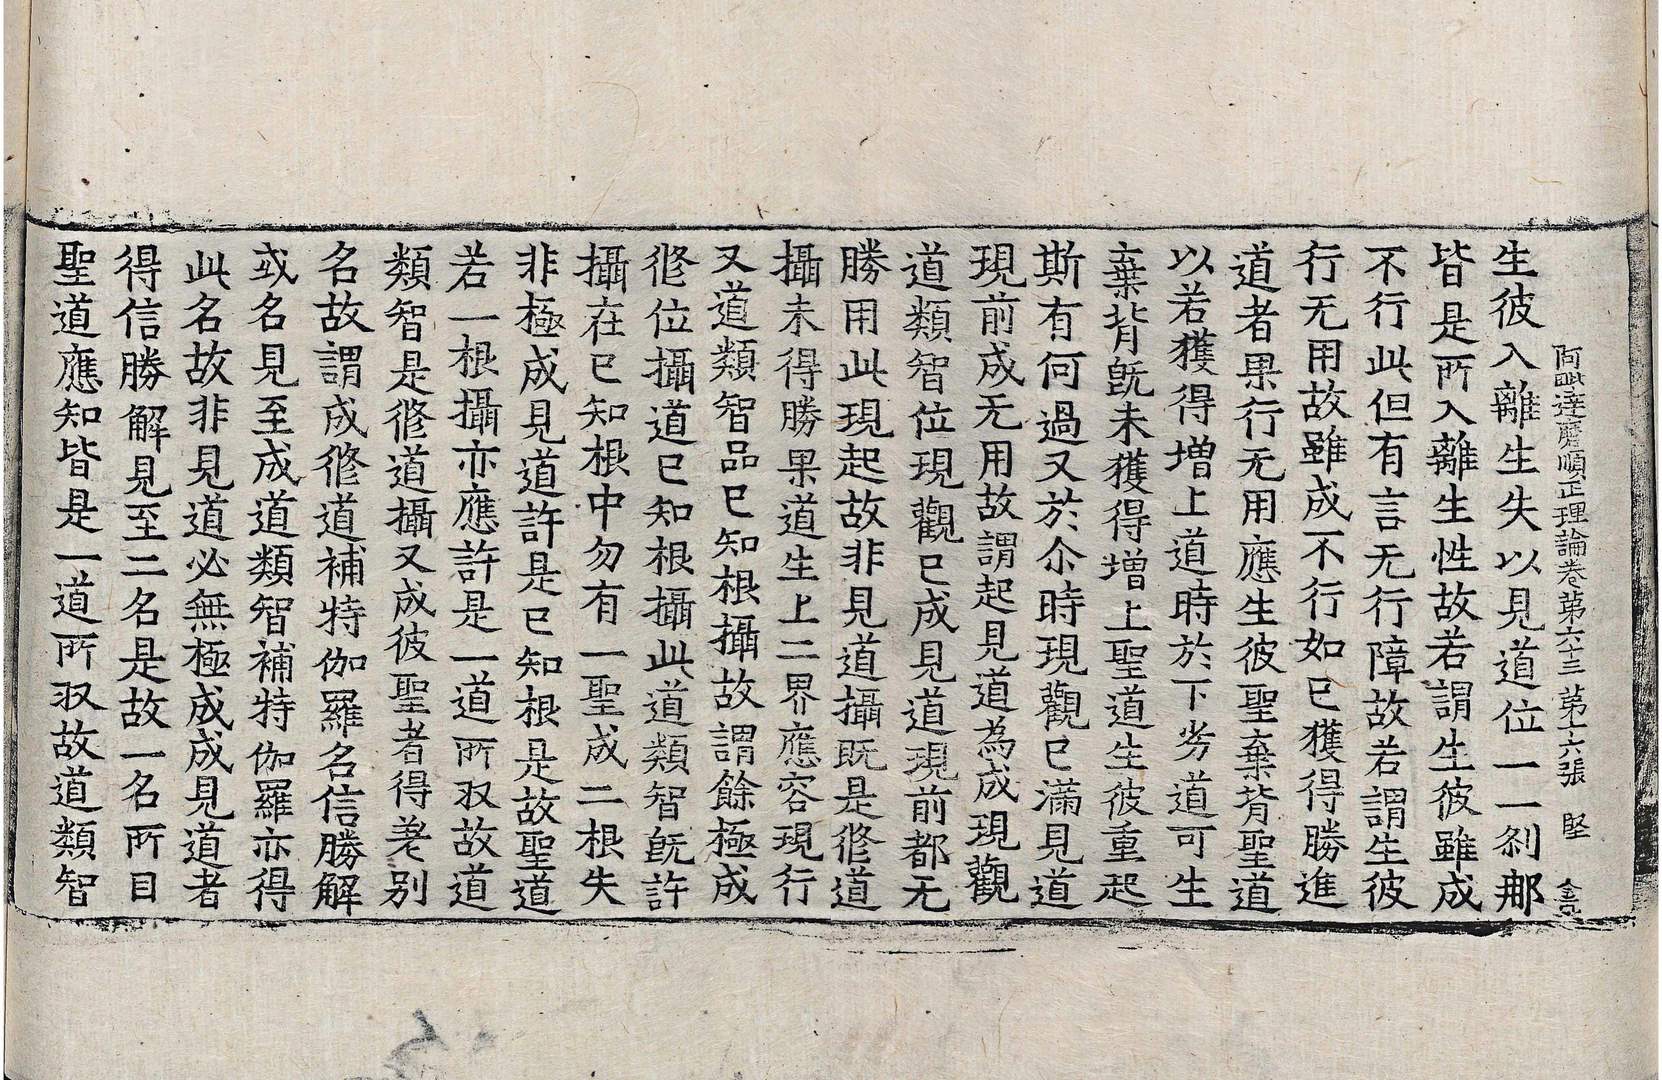 阿毗達磨順正理論卷第六十三 第十六張 堅
生彼入離生失以見道位一一刹那
皆是所入離生性故若謂生彼雖成
不行此但有言无行障故若謂生彼
行无用故雖成不行如已獲得勝進
道者果行无用應生彼聖棄背聖道
以若獲得增上道時於下劣道可生
棄背旣未獲得增上聖道生彼重起
斯有何過又於尒時現觀已滿見道
現前成无用故謂起見道為成現觀
道類智位現觀已成見道現前都无
勝用此現起故非見道攝既是修道
攝未得勝果道生上二界應容現行
又道類智品已知根攝故謂餘極成
修位攝道已知根攝此道類智旣許
攝在已知根中勿有一聖成二根失
非極成見道許是已知根是故聖道
若一根攝亦應許是一道所收故道
類智是修道攝又成彼聖者得差別
名故謂成修道補特伽羅名信勝解
或名見至成道類智補特伽羅亦得
此名故非見道必無極成成見道者
得信勝解見至二名是故一名所目
聖道應知皆是一道所收故道類智